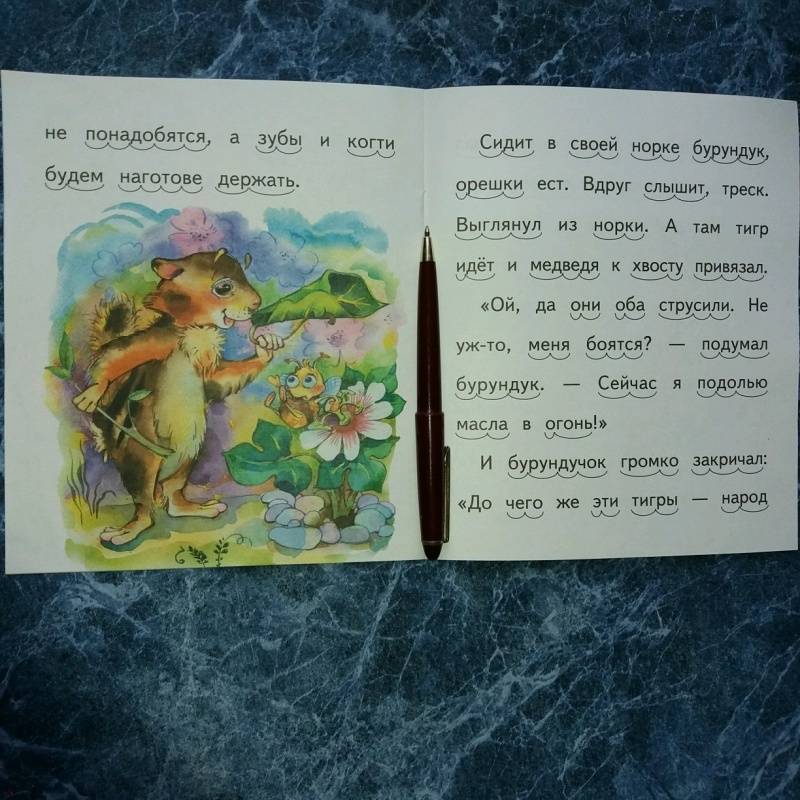 не понадобятся, а зубы и когти
будем наготове держать.
Сидит в своей норке бурундук,
орешки ест. Вдруг слышит, треск.
Выглянул из норки. А там тигр
идёт и медведя к хвосту привязал.
«Ой, да они оба струсили. Не
уж-то, меня боятся? — подумал
бурундук. — Сейчас я подолью
масла в огонь!»
И бурундучок громко закричал:
«До чего же эти тигры — народ